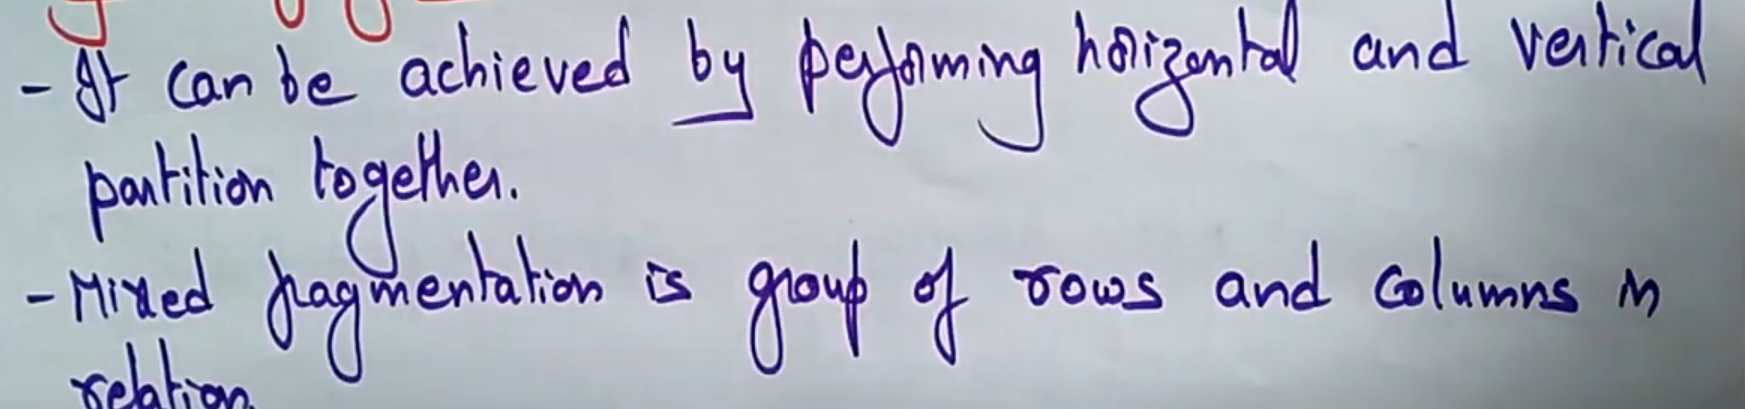 - It can be achieved by performing horizontal and vertical
partition together.
- Mixed fragmentation is group of rows and columns in
relation.